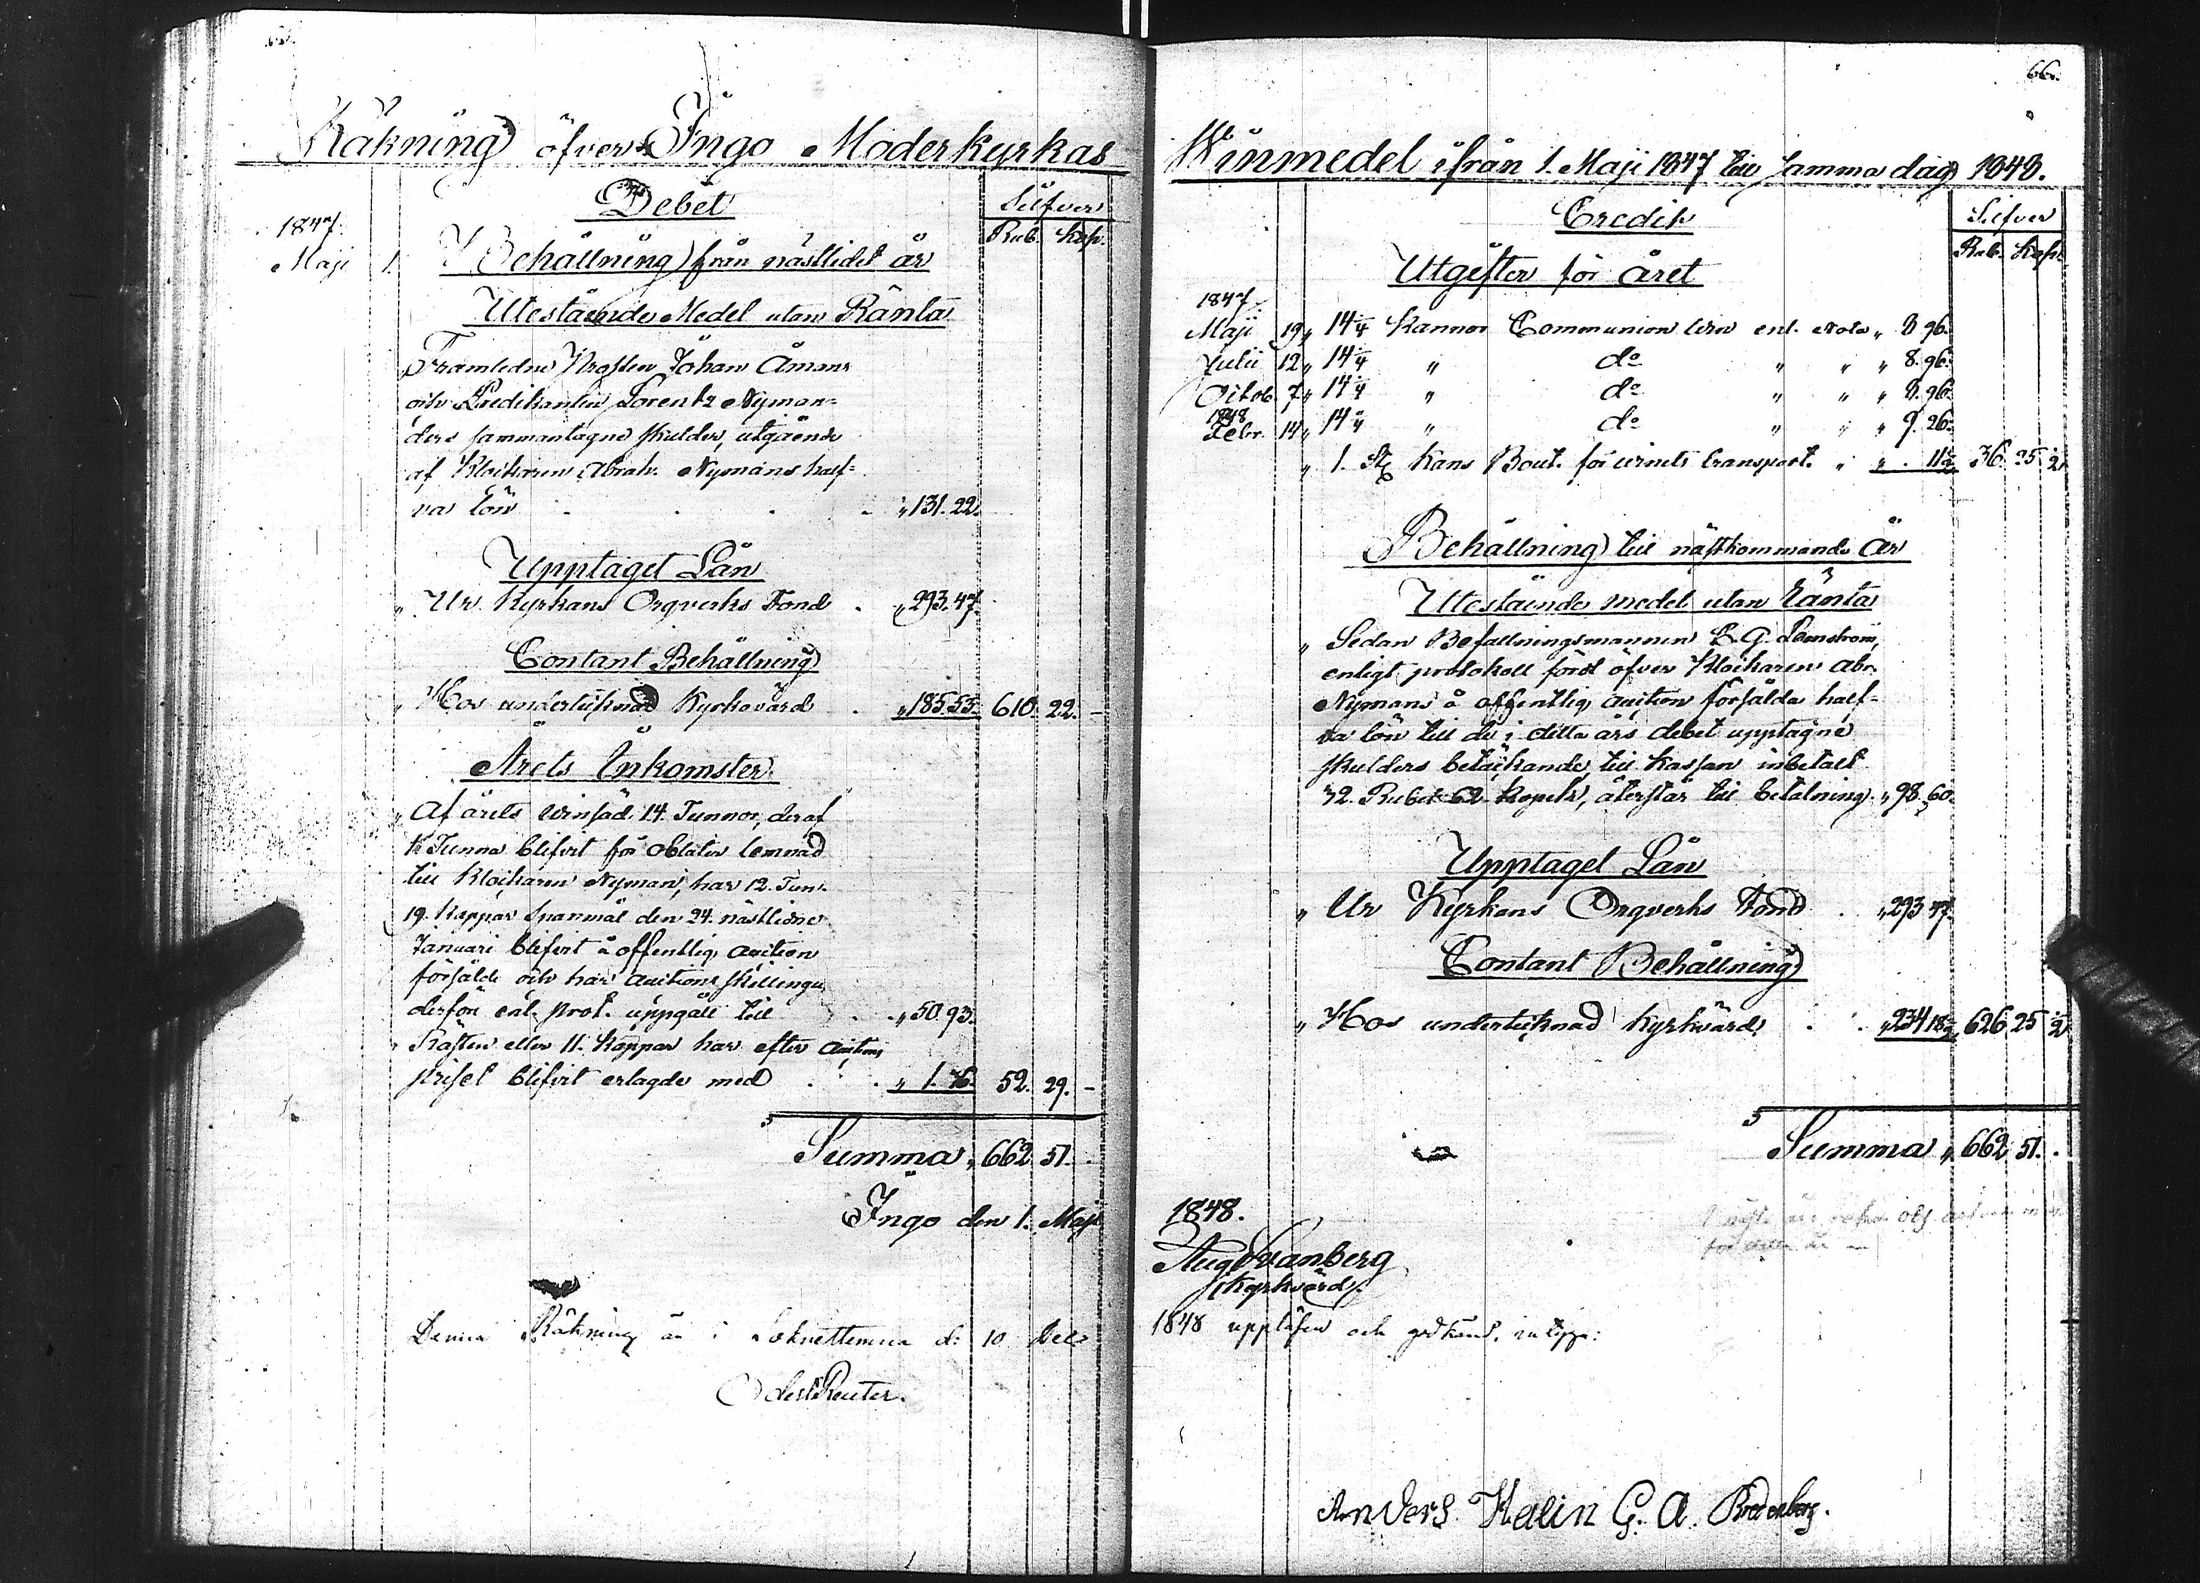 66.
Räkning öfver Ingo Moderkyrkas
Debet
Silfver
Rub. Kop.
1847.
Maji 1. Behållning från nästlidet år
Utestående Medel utan Ränta
Framledne Prosten Johan Åmans
och Predikanten Lorentz Nyman-
ders sammantagne skulder, utgående
af Klockaren Abrah. Nymans half-
va lön " 131. 22.
Upptaget Lån
" Ur Kyrkans Orgverks Fond " 293. 47.
Contant Behållning
" Hos undertecknad Kyrkovärd " 185.53. 610. 22. -
Årets Inkomster.
" Af årets winsäd 14. Tunnor, deraf
1. Tunna blifvit för oblater lemnad
till Klockaren Nyman, har 12. Tunr.
19. Kappar Spanmål den 24. nästlidne
Januari blifvit å offentlig auction
försåld och har auctions skillingen
derför enl. prot. uppgått till " 50. 93.
" Resten eller 11. Kappar har efter auctions
priset blifvit erlagde med " 1. 36. 52. 29. -
Summa " 662. 51. -
Ingo den 1. Maji
Denna Räkning är i Sockenstemma d: 10 Dec
Reuter.
Winmedel ifrån 1. Maji 1847 till samma dag 1848.
Credit
Silfver
Rub. Kop.
Utgifter för året
1847.
Maji 19 " 14 1/4 Kannor Communion win enl. Nota " 8 96.
Julii 12 " 14 1/4 " do " " " 8. 96.
Octob. 7 " 14 1/4 " do " " " 8. 96.
1848
Febr. 14 " 14 1/4 " do " " " 9. 26.
" 1. St. Kans Bout. för winets transport. " " . 11 1/2 36. 25 1/2
Behållning till nästkommande År
Utestående medel utan Ränta
" Sedan Befallningsmannen
enligt protokoll fördt öfver Klockaren Abr.
Nymans å offentlig auction försålda half-
va lön till de i detta års debet upptagne
skulders betäckande, till Kassan inbetalt
32. Rubel 62 Kopek, återstår till betalning " 98 60.
Upptaget Lån
" Ur Kyrkans Orgverks Fond " 293 47.
Contant Behållning
" Hos undertecknad Kyrkvärd " 234 18 1/2 626 25 1/2
Summa " 662 51. .
1848.
Aug Svanberg
Kyrkvärd.
1848 uppläsen och godkänd,
Anders Halin G. A. Bredenberg.